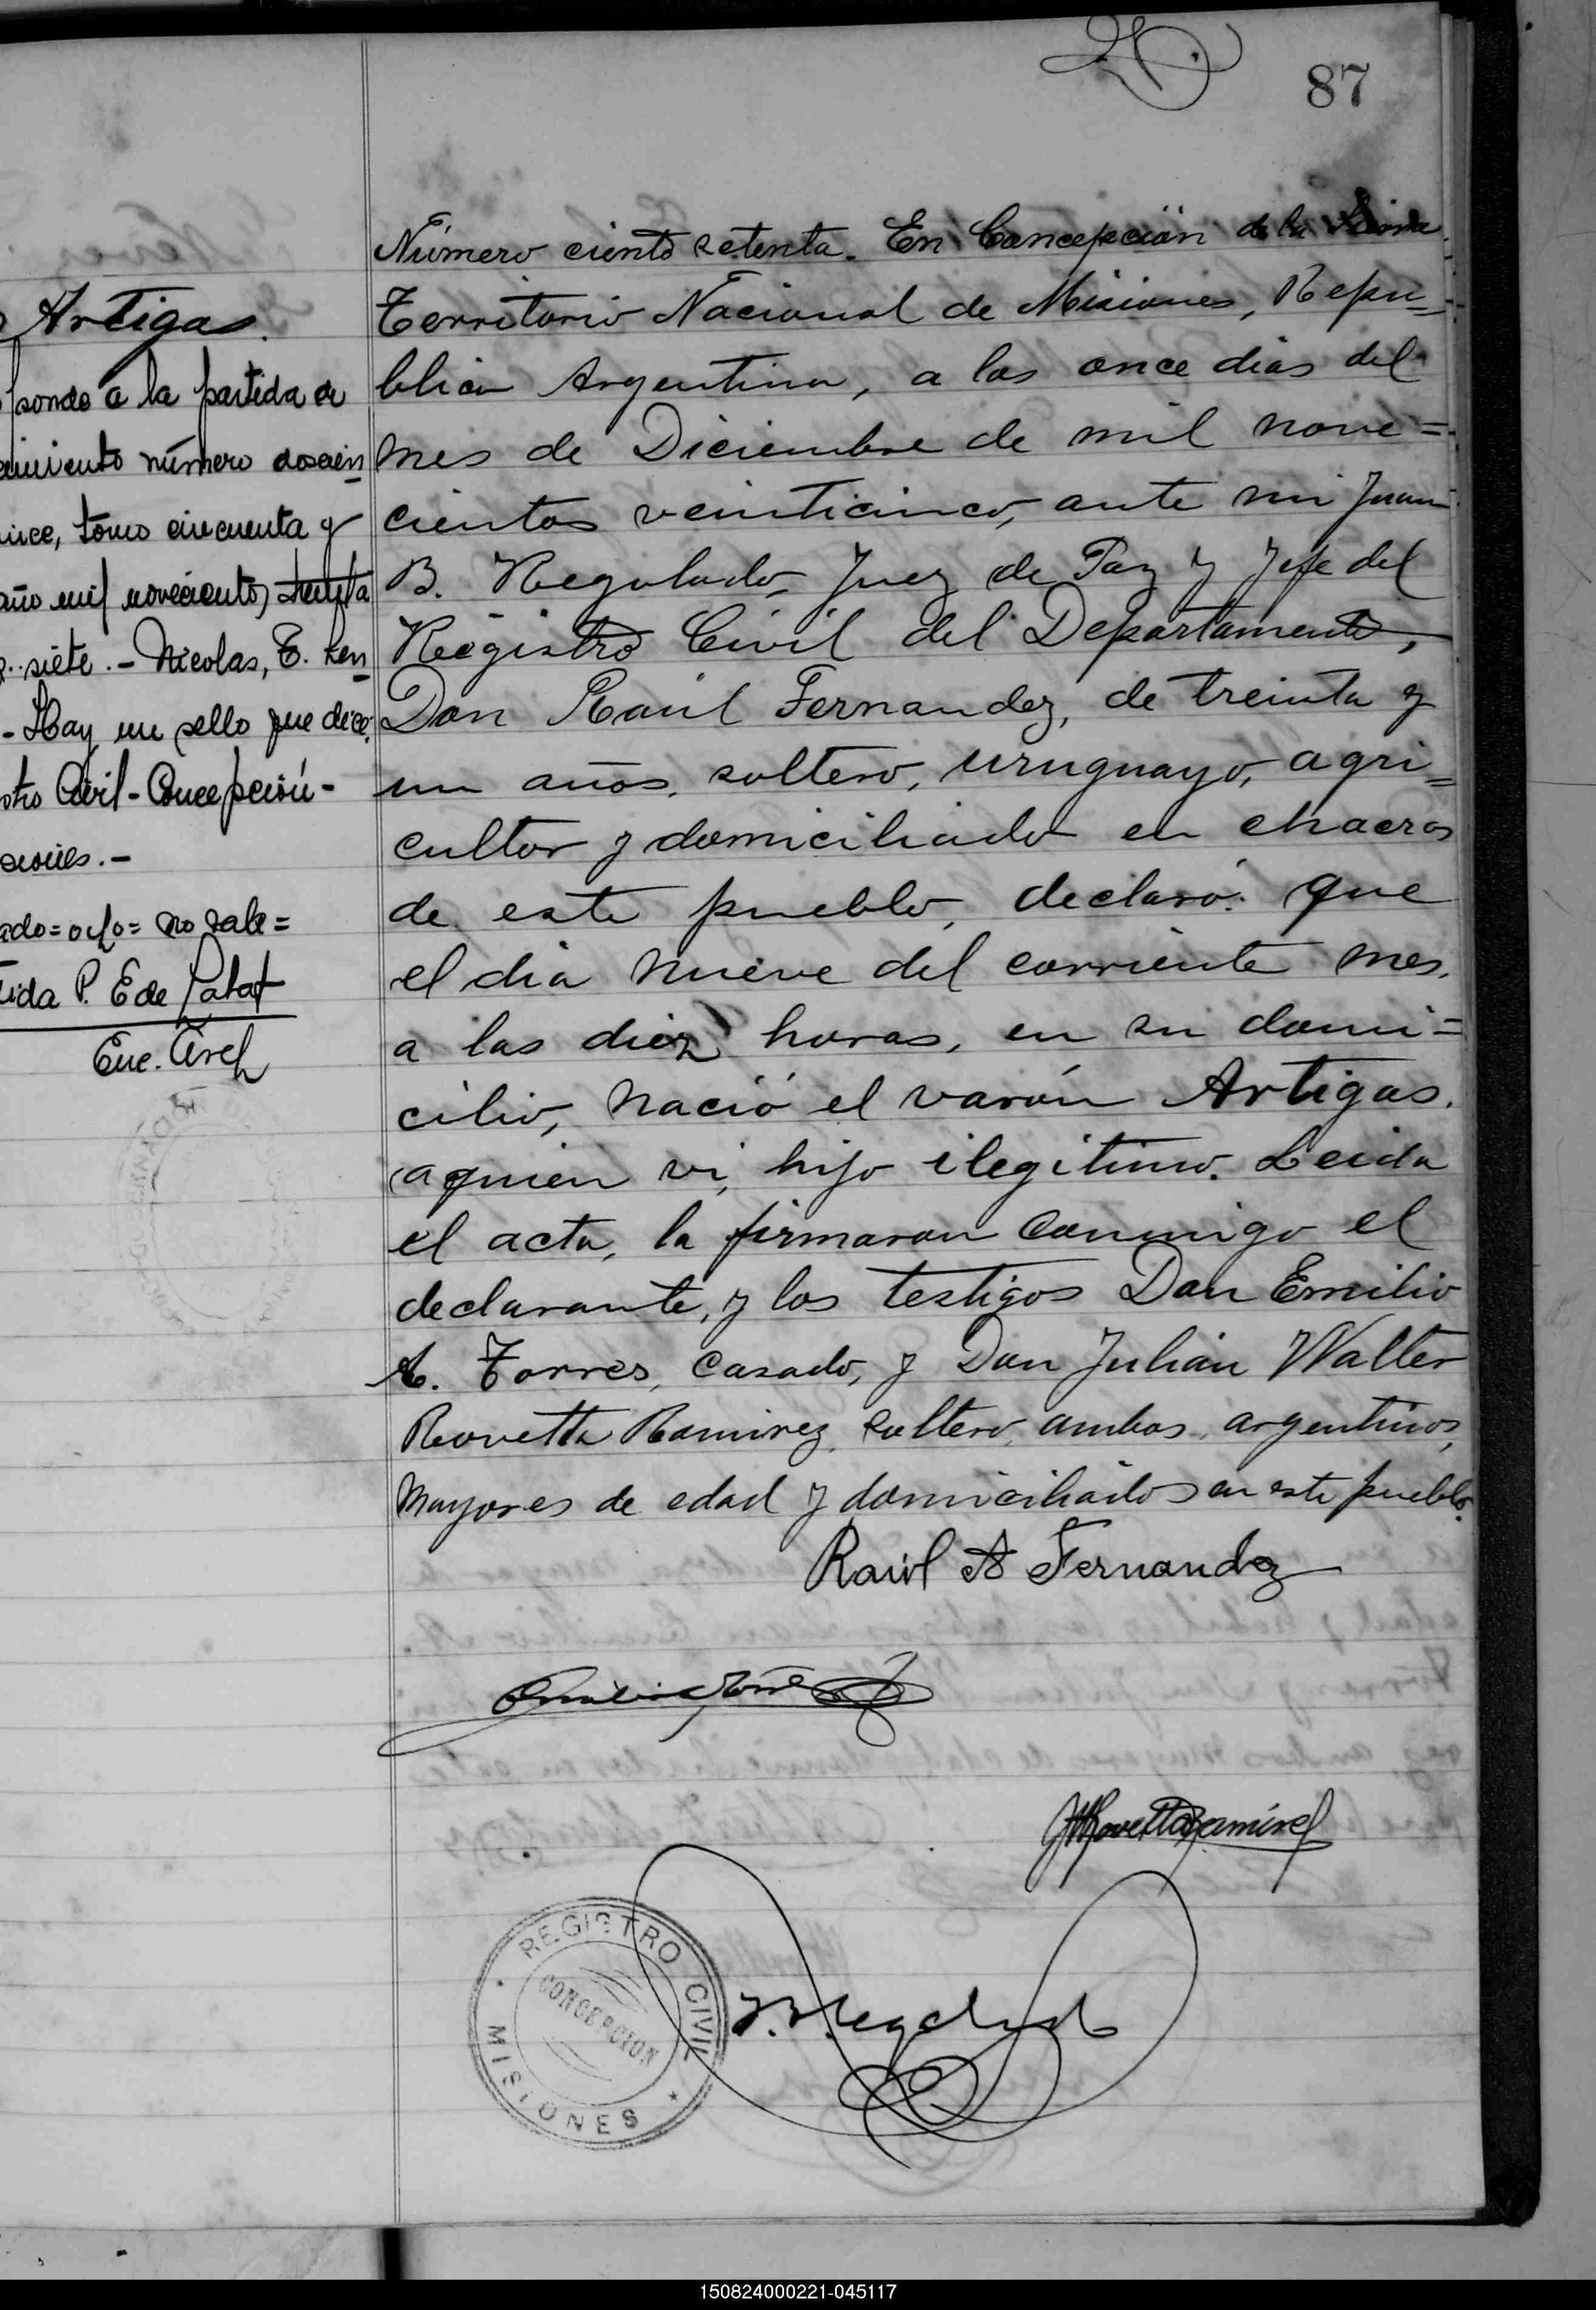 87
Número ciento setenta. En Concepción de la Sierra
Territorio Nacional de Misiones, Repu=
blica Argentina, a los once dias del
mes de Diciembre de mil nove=
cientos veinticinco, ante mi Juan
B. Regulado, Juez de Paz y Jefe del
Registro Civil del Departamento,
Don Raúl Fernandez, de treinta y
un años, soltero, uruguayo, agri=
cultor y domiciliado en chacras
de este pueblo, declaró: que
el dia nueve del corriente mes,
a las diez horas, en su domi=
cilio, nació el varón Artigas,
a quien vi, hijo ilegitimo. Leida
el acta, la firmaron conmigo el
declarante, y los testigos Don Emilio
A. Torres, casado, y Don Julián Walter
Rovetta Ramirez, soltero, ambos, argentinos,
mayores de edad y domiciliados en este pueblo.
Raúl A Fernandez
JWRovettaRamirez
J.B. Regulado
REGISTRO CIVIL
CONCEPCION
MISIONES
Artigas.
ponde a la partida de
cimiento número doscien
ince, tomo cincuenta y
año mil novecientos treinta
siete.- Nicolas, E.
- Hay un sello que dice
stro Civil - Concepción -
siones.-
ado = ocho = no vale =
tida P. E de
Enc. Arch
150824000221-045117